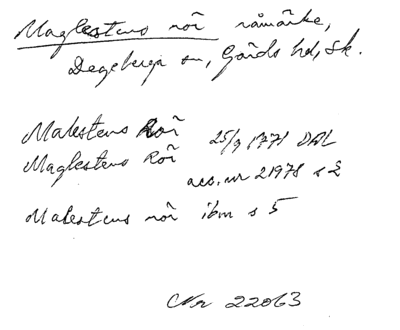 Maglestens rör råmärke,
Degeberga sn, Gärds hd, Sk.
Malestens Rör 25/9 1771 DAL
Maglestens Rör acc. nr 21978 s 2
Malestens rör ibm s 5
Nr 22063